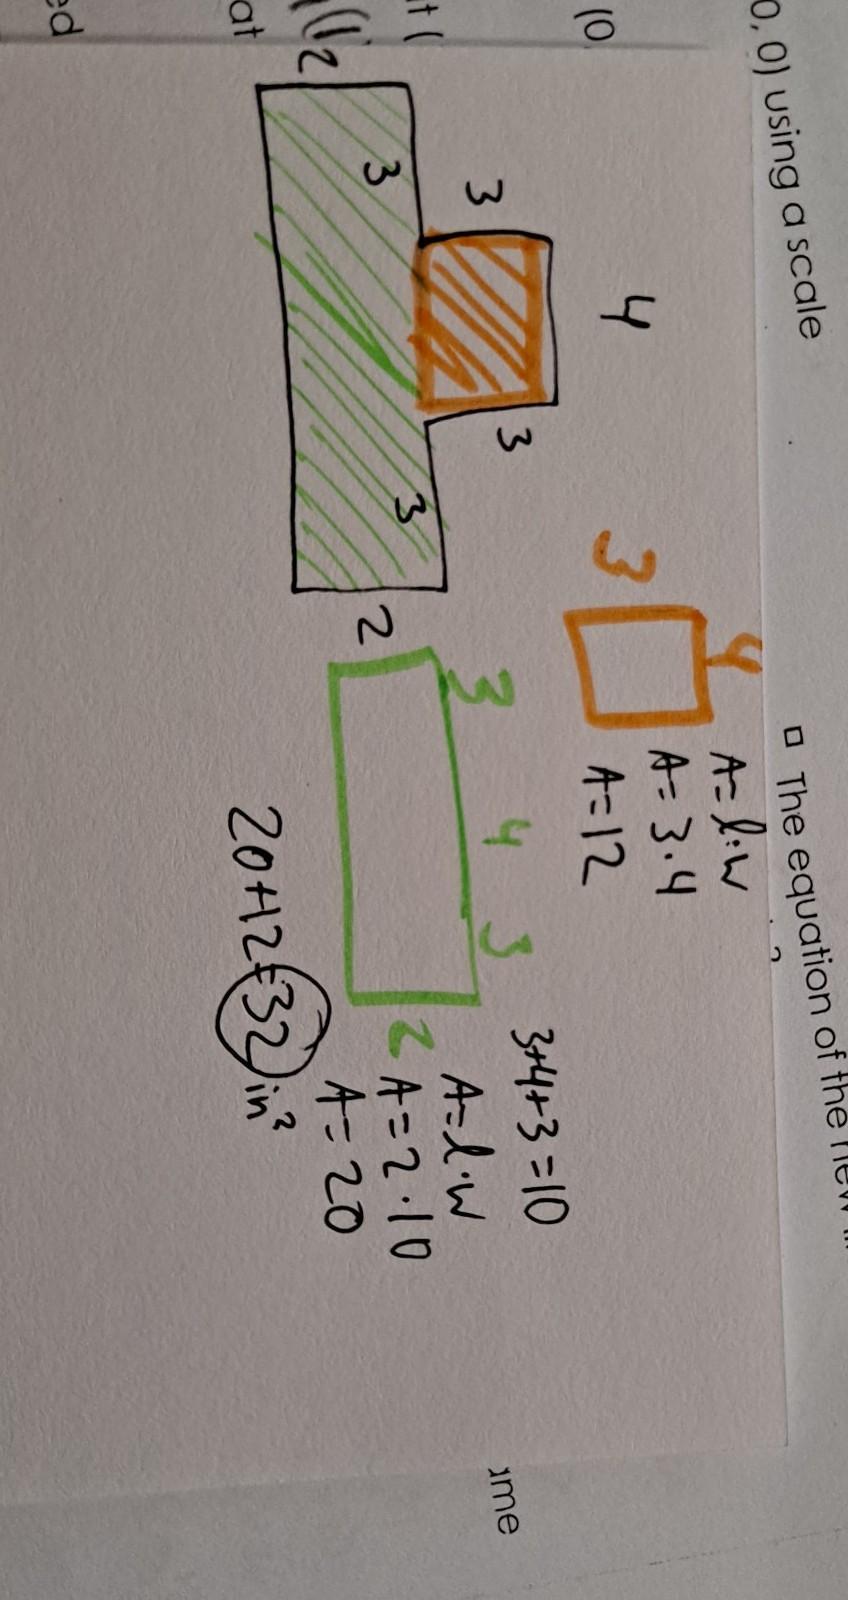 0, 0) using a scale
(0
□ The equation of the new
at
ed
ame
4
3
3
3
3
2
2
3
4
A=l·w
A=3·4
A=12
3
4
3
2
3+4+3=10
A=l·w
A=2·10
A=20
20+12=32 in²